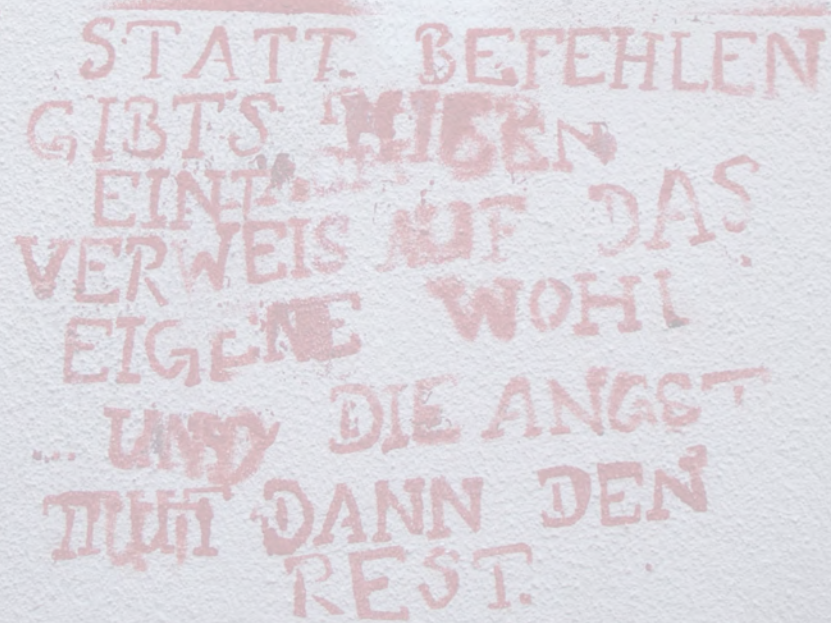 STATT BEFEHLEN
GIBTS HIER
EIN
VERWEIS AUF DAS
EIGENE WOHL
... UND DIE ANGST
TUT DANN DEN
REST.